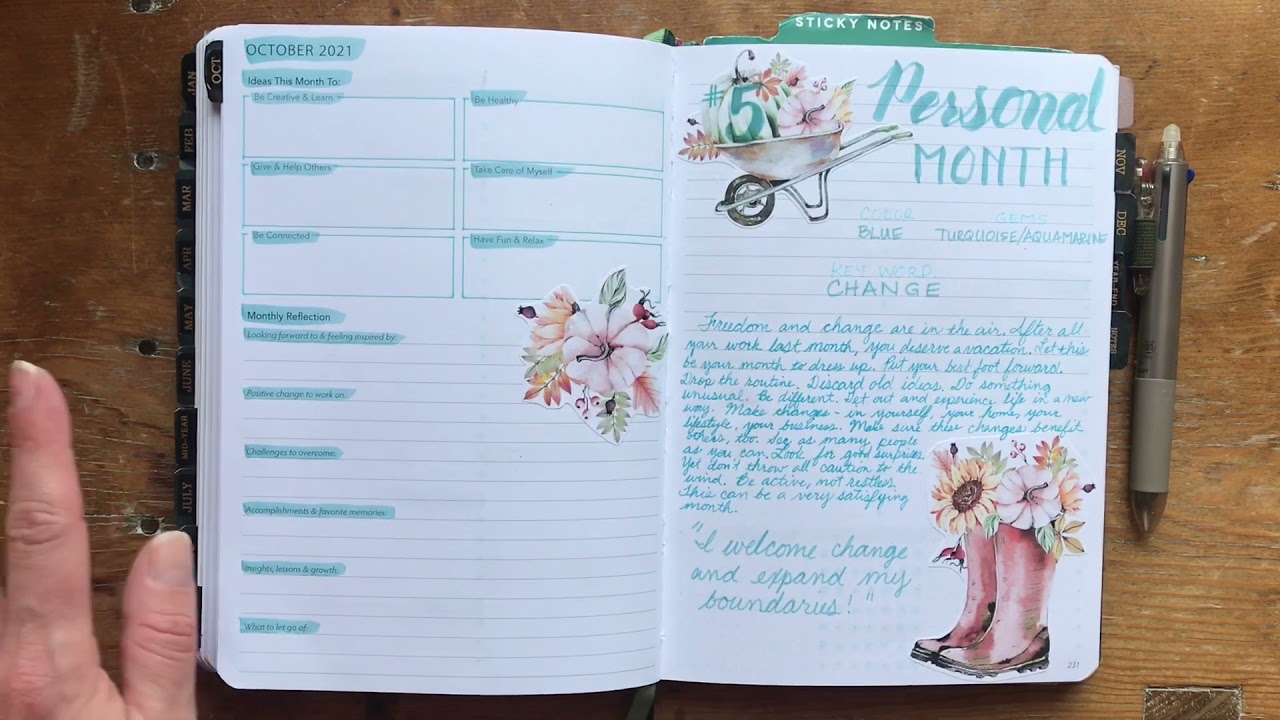 STICKY NOTES
OCT
JAN
FEB
MAR
APR
MAY
JUNE
MID-YEAR
JULY
OCTOBER 2021
Ideas This Month To:
Be Creative & Learn
Be Healthy
Give & Help Others
Take Care of Myself
Be Connected
Have Fun & Relax
Monthly Reflection
Looking forward to & feeling inspired by:
Positive change to work on:
Challenges to overcome:
Accomplishments & favorite memories:
Insights, lessons & growth:
What to let go of:
#5 Personal
MONTH
COLOR GEMS
BLUE TURQUOISE/AQUAMARINE
KEY WORD
CHANGE
Freedom and change are in the air. After all
your work last month, you deserve a vacation. Let this
be your month to dress up. Put your best foot forward.
Drop the routine. Discard old ideas. Do something
unusual. Be different. Get out and experience life in a new
way. Make changes - in yourself, your home, your
lifestyle, your business. Make sure these changes benefit
others, too. See as many people
as you can. Look for good surprises.
Yet don't throw all caution to the
wind. Be active, not restless.
This can be a very satisfying
month.
"I welcome change
and expand my
boundaries!"
231
NOV
DEC
YEAR-END
NOTES